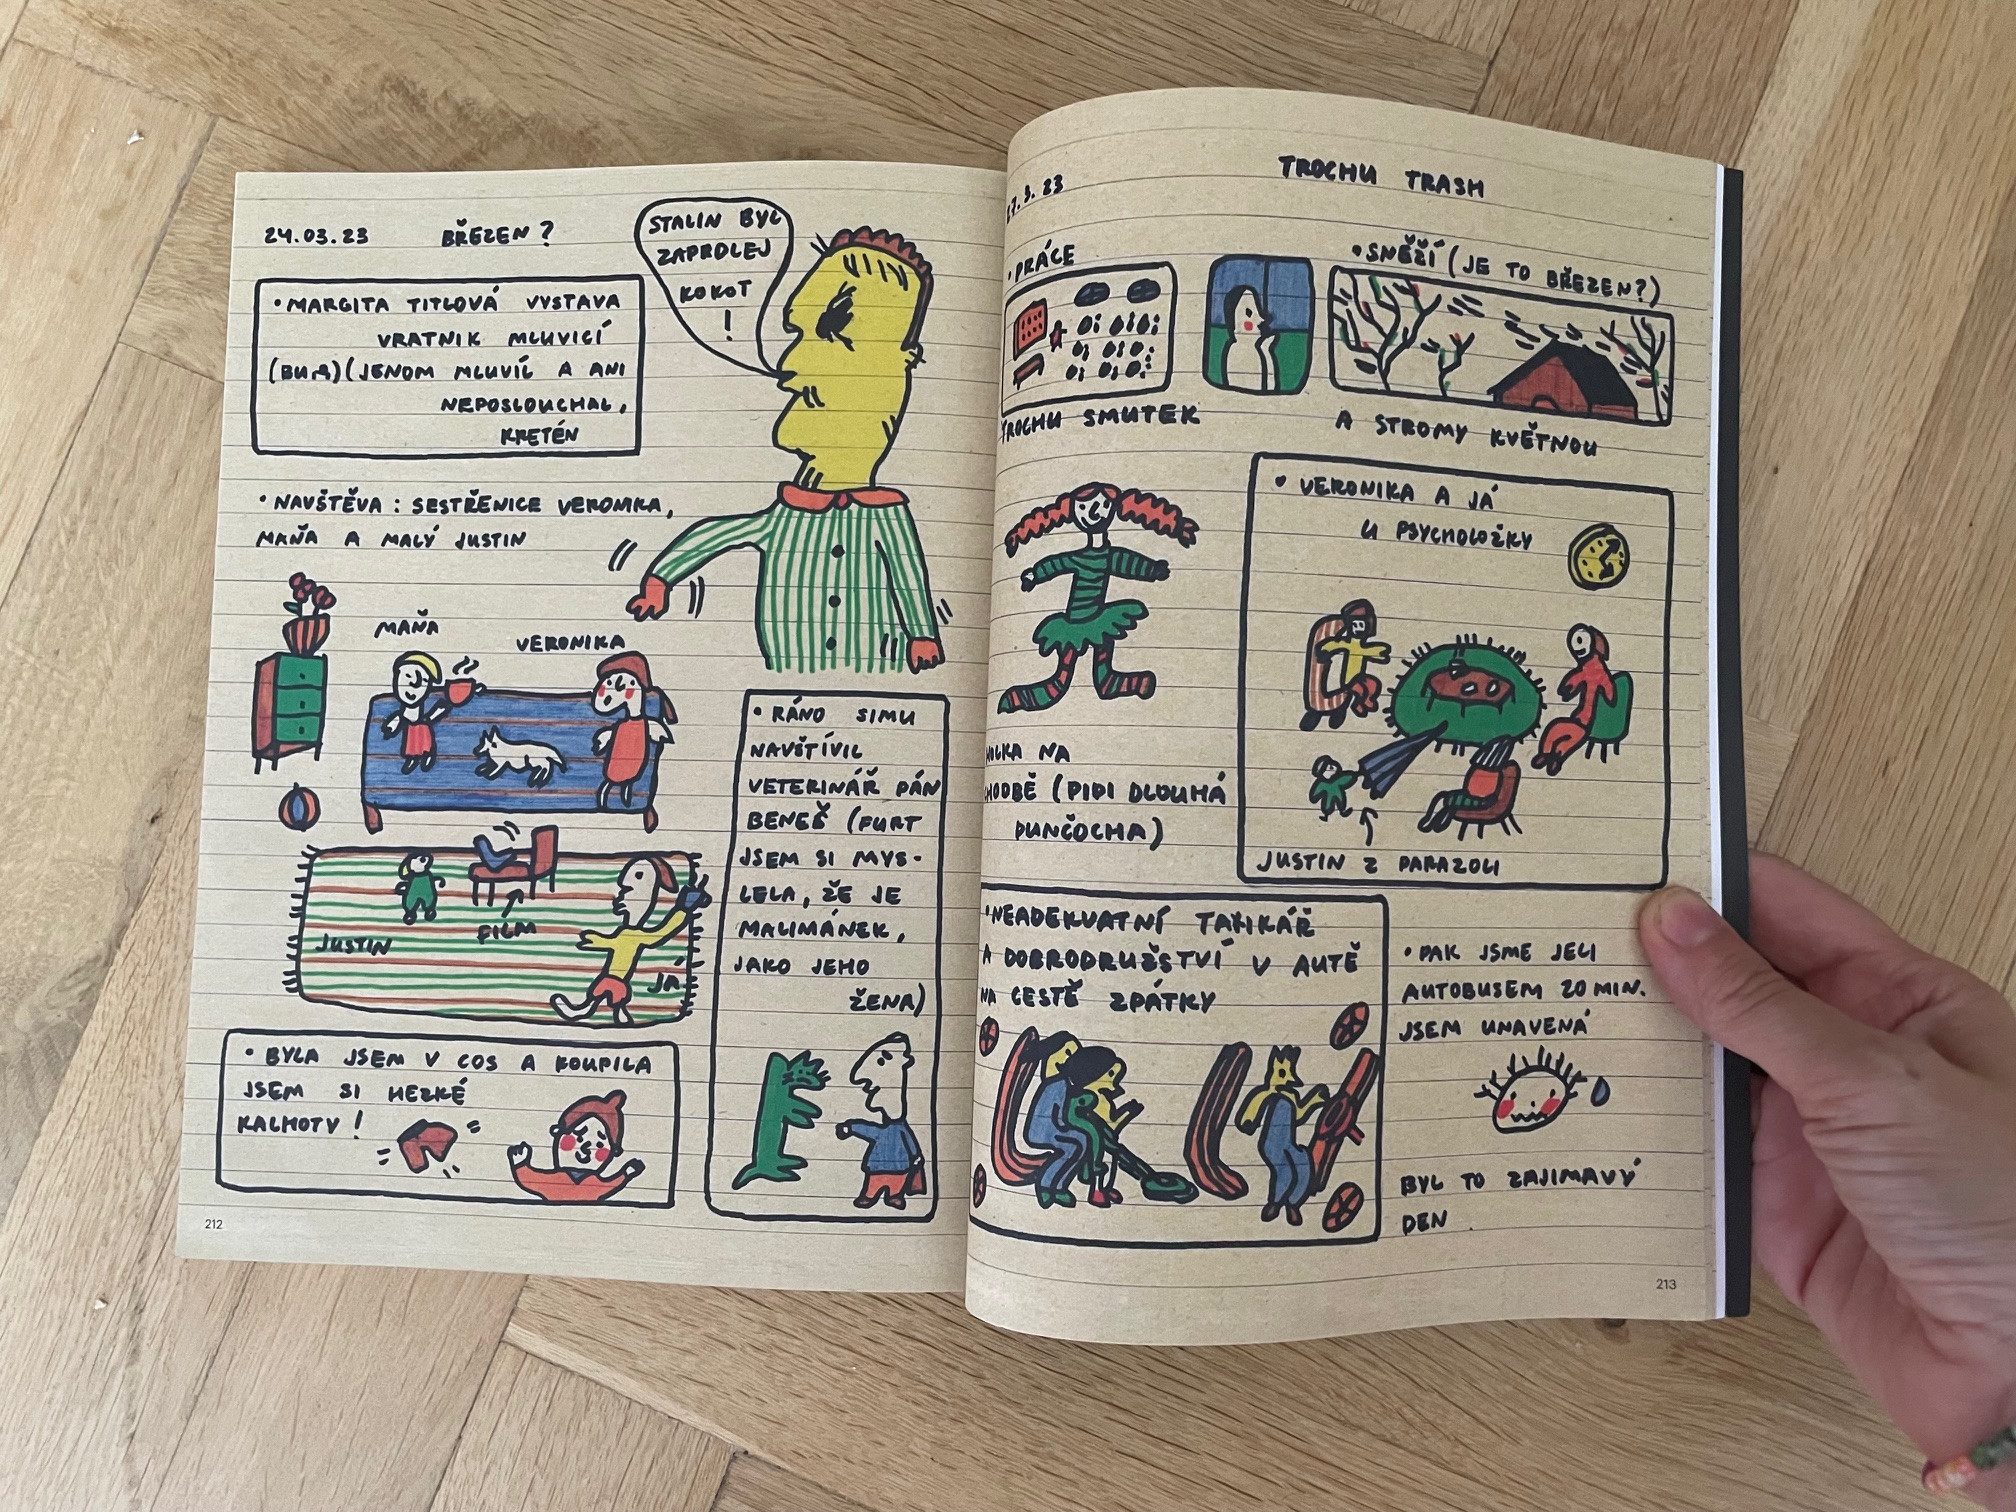 24.03.23 BŘEZEN?
STALIN BYL
ZAPRDLEJ
KOKOT
!
• MARGITA TITLOVÁ VYSTAVA
VRATNIK MLUVICÍ
(JENOM MLUVIL A ANI
NEPOSLOUCHAL,
KRETÉN
• NAVŠTĚVA: SESTŘENICE VERONIKA,
MAŇA A MALÝ JUSTIN
MAŇA
VERONIKA
JUSTIN
FILM
JÁ
• BYLA JSEM V COS A KOUPILA
JSEM SI HEZKÉ
KALHOTY!
• RÁNO SIMU
NAVŠTÍVIL
VETERINÁŘ PÁN
BENEŠ (FURT
JSEM SI MYS-
LELA, ŽE JE
MALIMÁNEK,
JAKO JEHO
ŽENA)
212
27.3.23
TROCHU TRASH
• PRÁCE
TROCHU SMUTEK
• SNĚŽÍ (JE TO BŘEZEN?)
A STROMY KVĚTNOU
HOLKA NA
CHODBĚ (PIPI DLOUHÁ
PUNČOCHA)
• VERONIKA A JÁ
U PSYCHOLOŽKY
JUSTIN Z PARAZOLI
• NEADEKVATNÍ TAXIKÁŘ
A DOBRODRUŽSTVÍ V AUTĚ
NA CESTĚ ZPÁTKY
• PAK JSME JELI
AUTOBUSEM 20 MIN.
JSEM UNAVENÁ
BYL TO ZAJIMAVÝ
DEN
213